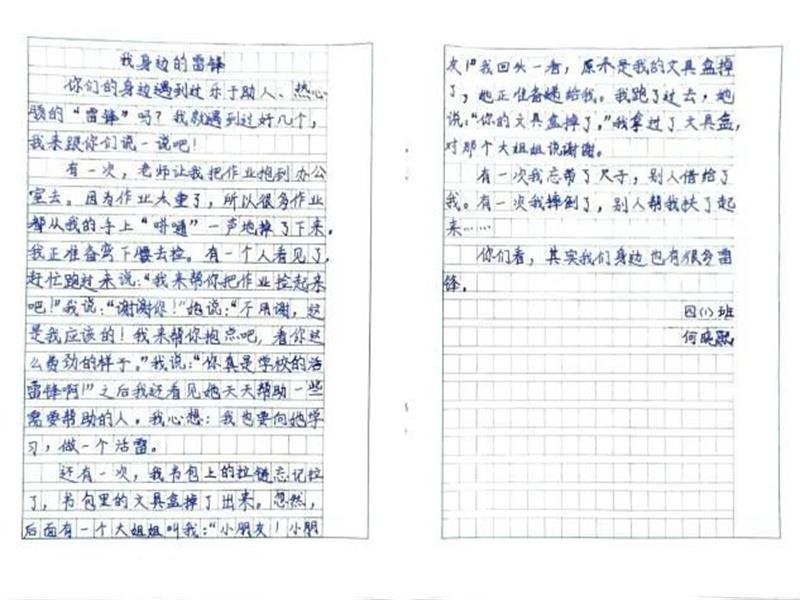 我身边的雷锋
你们的身边遇到过乐于助人、热心
肠的“雷锋”吗？我就遇到过好几个，
我来跟你们说一说吧！
有一次，老师让我把作业抱到办公
室去。因为作业太重了，所以很多作业
都从我的手上“哗通”一声地掉了下来。
我正准备弯下腰去捡。有一个人看见了，
赶忙跑过来说：“我来帮你把作业捡起来
吧！”我说：“谢谢你！”她说：“不用谢，这
是我应该的！我来帮你抱忘吧，看你这
么费劲的样子。”我说：“你真是学校的活
雷锋啊！”之后我还看见她天天帮助一些
需要帮助的人。我心想：我也要向她学
习，做一个活雷。
还有一次，我书包上的拉链忘记拉
了，书包里的文具盒掉了出来。忽然，
后面有一个大姐姐叫我：“小朋友！小朋
友！”我回头一看，原来是我的文具盒掉
了，她正准备递给我。我跑了过去，她
说：“你的文具盒掉了。”我拿过了文具盒，
对那个大姐姐说谢谢。
有一次我忘带了尺子，别人借给了
我。有一次我摔倒了，别人帮我扶了起
来……
你们看，其实我们身边也有很多雷
锋。
四（1）班
何晓熙